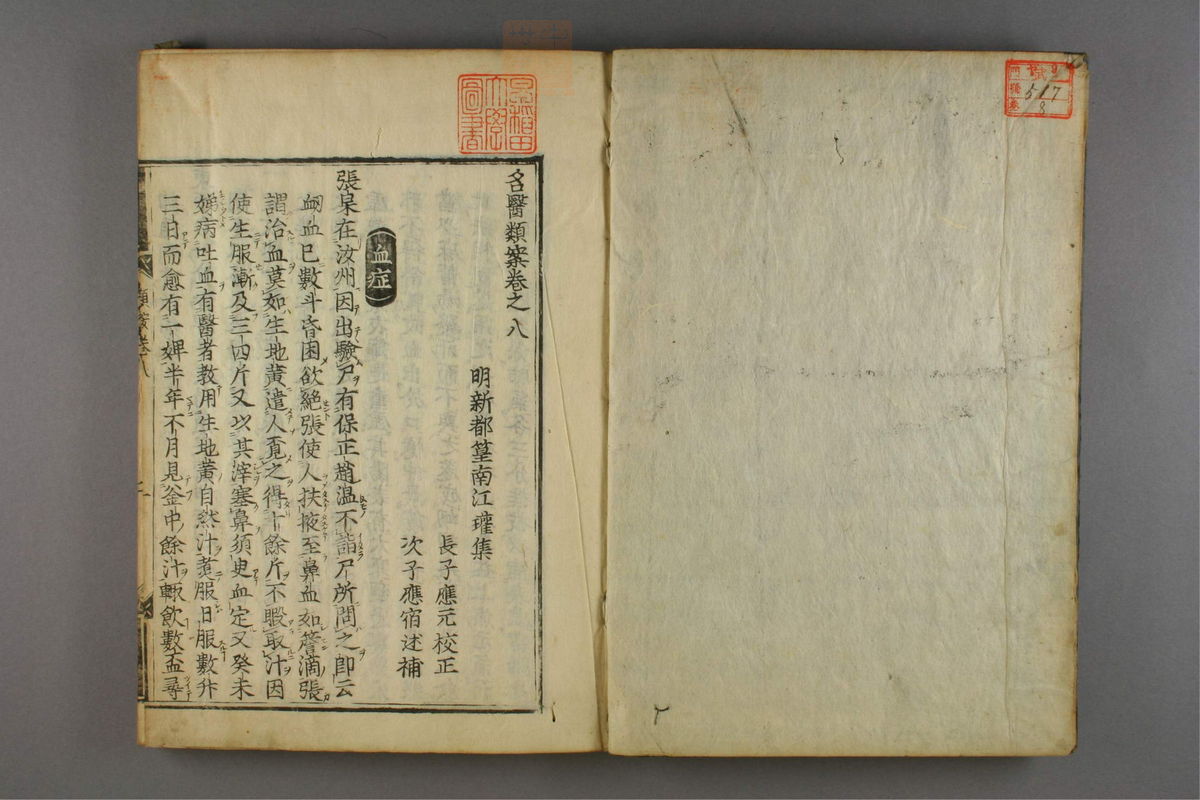 517
8
早稲田
大學
圖書
名醫類案卷之八
明新都篁南江瓘集
長子應元校正
次子應宿述補
血症
張杲在汝州因出驗尸有保正趙溫不詣尸所問之卽云
衂血已數斗昏困欲絕張使人扶掖至鼻血如簷滴張
謂治血莫如生地黃遣人覓之得十餘斤不暇取汁因
使生服漸及三四斤又以其滓塞鼻須臾血定又癸未
娣病吐血有醫者教用生地黃自然汁煮服日服數升
三日而愈有一婢半年不月見釜中餘汁輒飲數盃尋
類案卷八